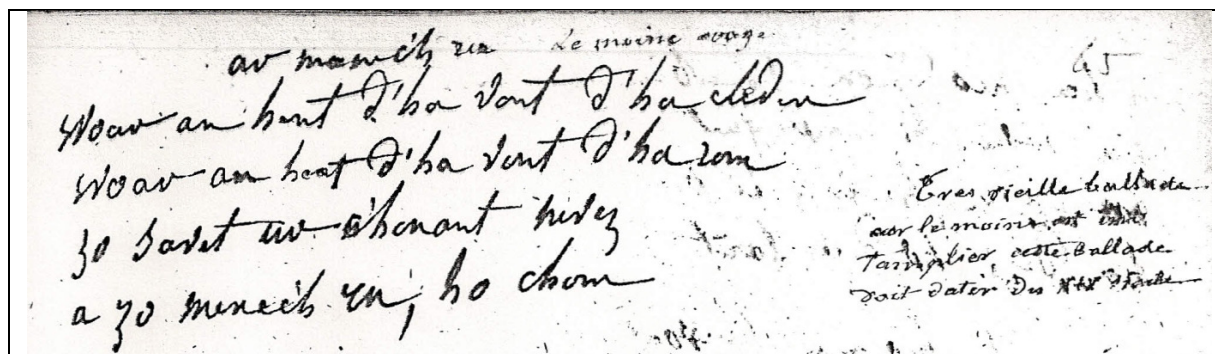 ar manec'h ru Le moine rouge
45
War an hent d'ha vont d'ha cleden
War an hent d'ha vont d'ha rom
zo savet ur c'honant nevez
a zo menec'h ru, ho chom
Tres vieille ballade
car le moine est
Tamplier cette ballade
doit dater du siecle